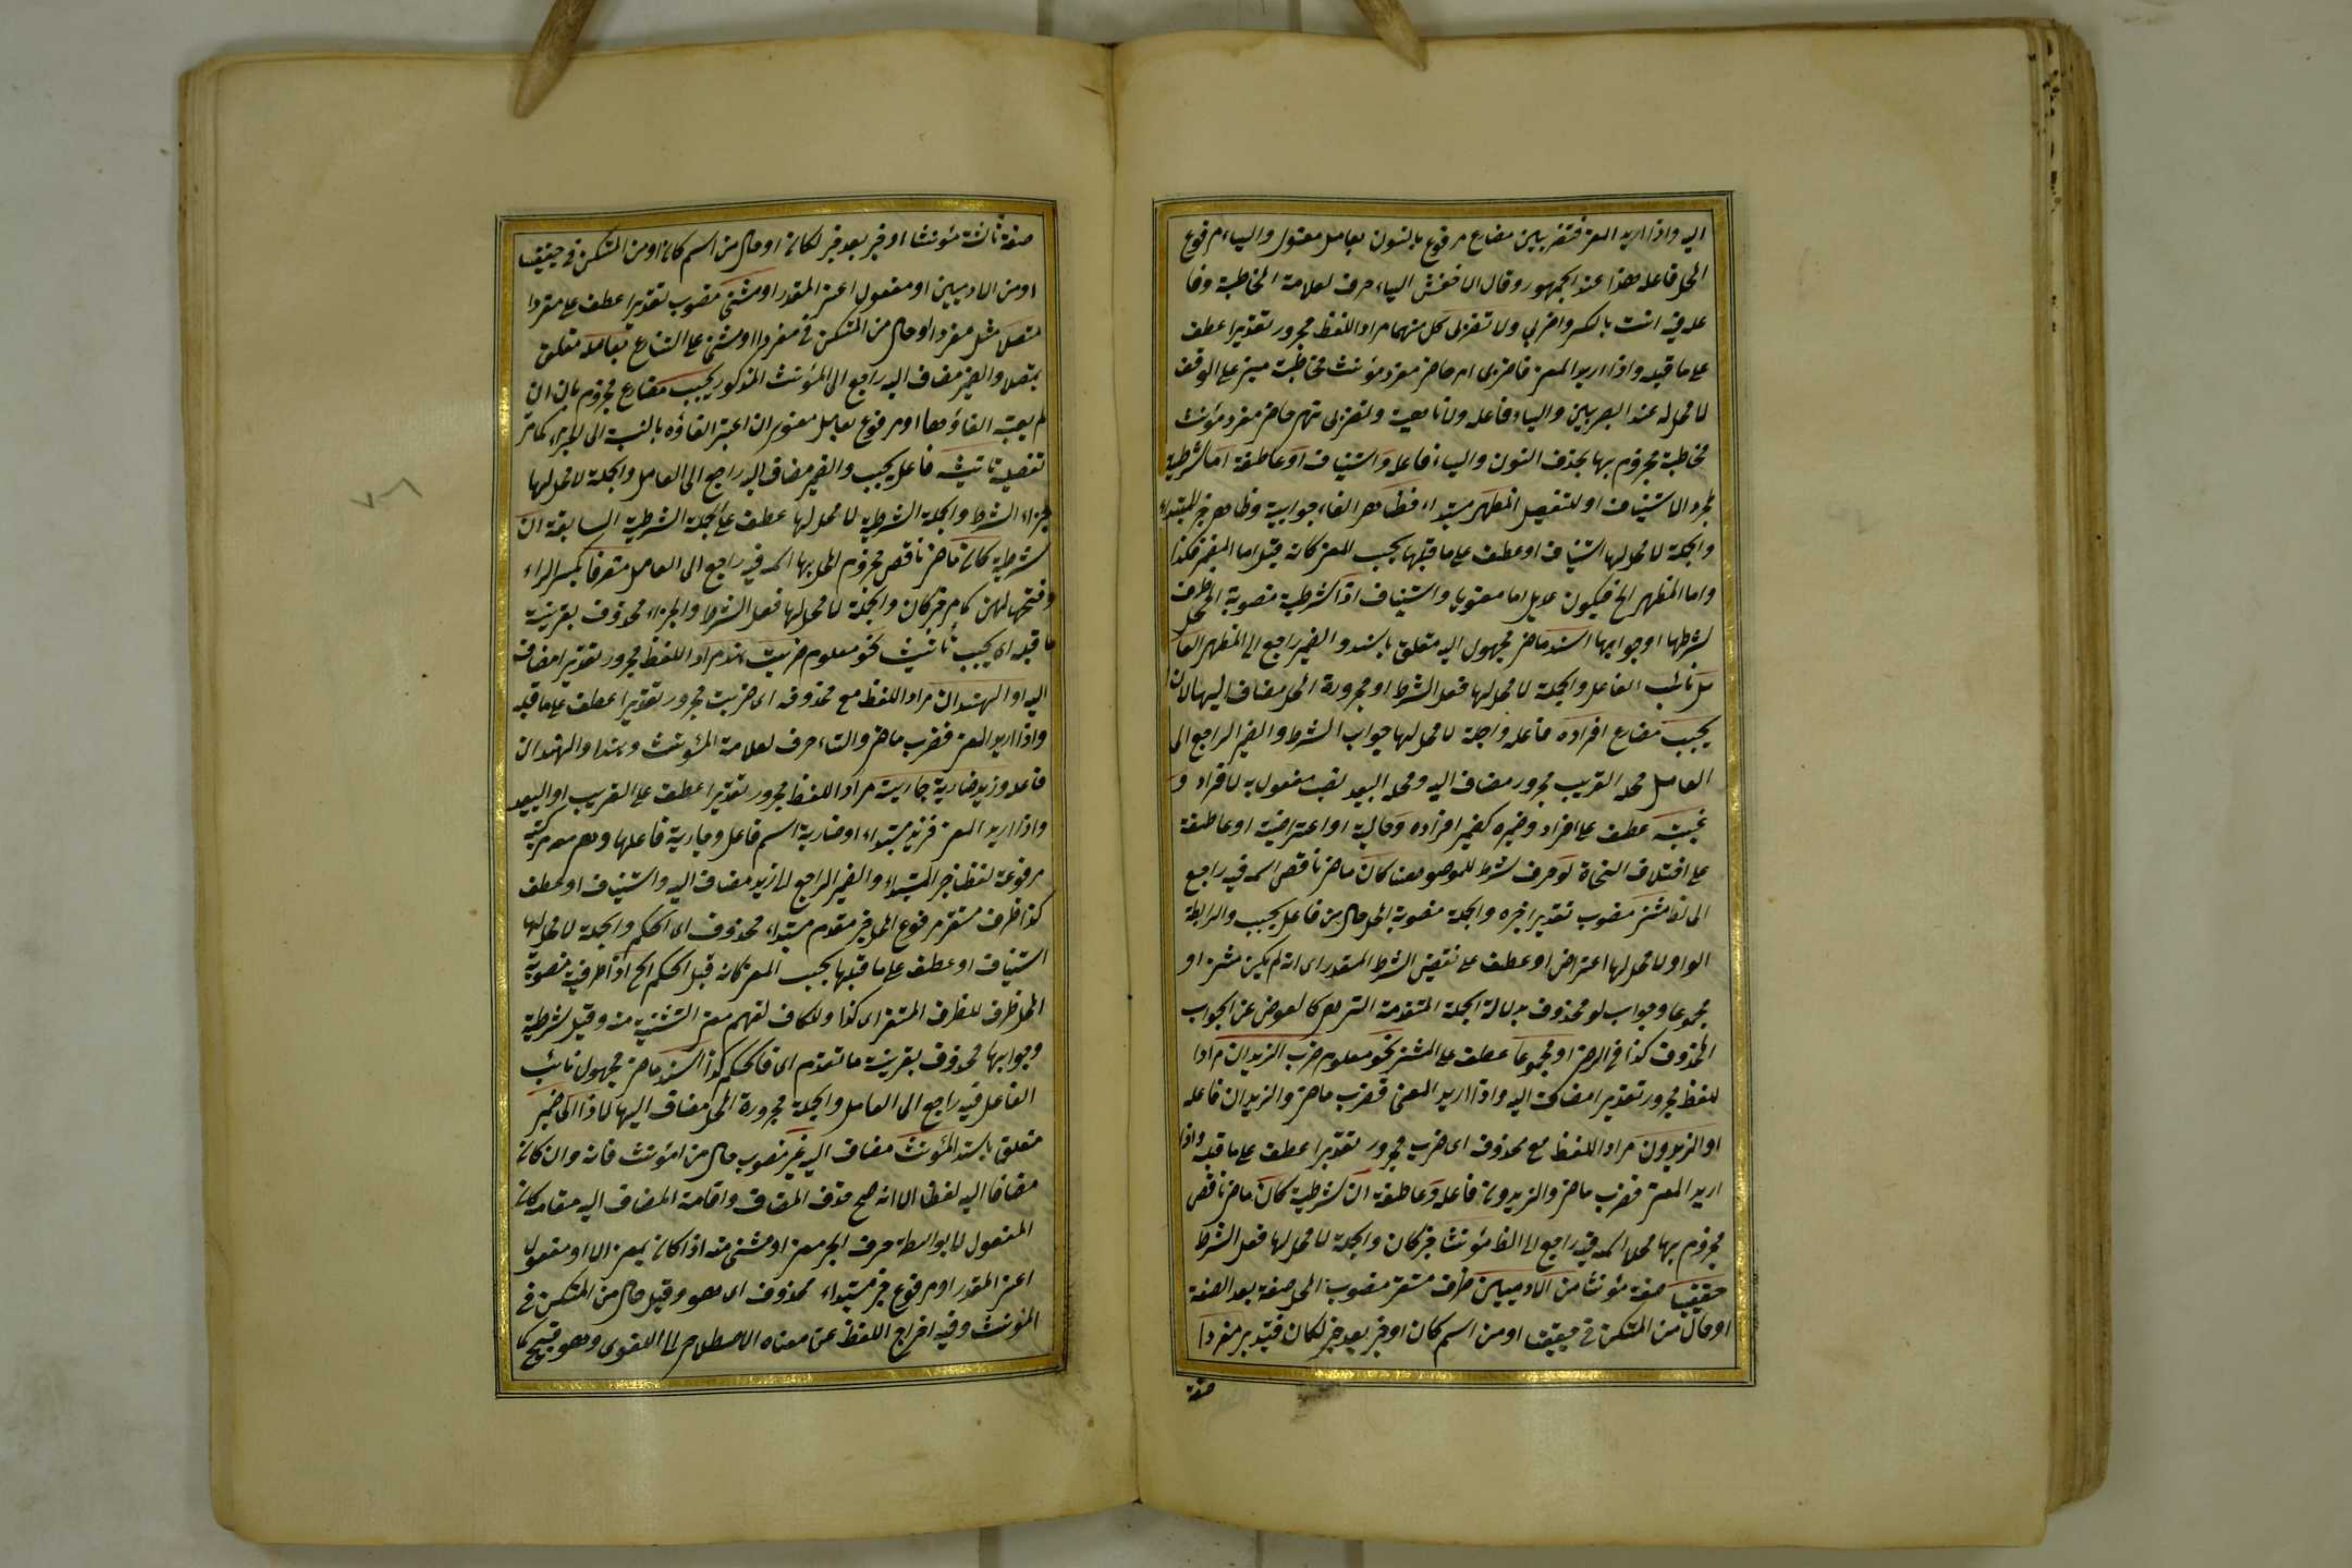 اليه واذا اريد المعنى فتضربين مضارع مرفوع بالنون بعامل معنوى والياء مرفوع
المحل فاعله هذا عند الجمهور وقال الاخفش الياء حرف لعلامة المخاطبة وفا
عله فيه انت بالكسر واضربى ولا تضربى كل منهما مراد اللفظ مجرور تقديرا عطف
على ما قبله واذا اريد المعنى فاضربى امر حاضر مفرد مؤنث مخاطبة مبنى على الوقف
لا محل له عند البصريين والياء فاعله ولا ناهية ولتضربى نهى حاضر مفرد مؤنث
مخاطبة مجزوم بها بحذف النون والياء فاعله واستيناف او عاطفة اما شرطية
لمجرد الاستيناف او للتفصيل المظهر مبتداء فظاهر الفاء جوابية وظاهر خبر المبتداء
والجملة لا محل لها استيناف او عطف على ما قبلها بحسب المعنى كانه قيل اما المضمر فكذا
واما المظهر الخ فيكون عديل اما معنويا واستيناف اذا شرطية منصوبة المحل ظرف
لشرطها او جوابها اسند ماض مجهول اليه متعلق باسند والضمير راجع الى المظهر الفا
عل نائب الفاعل والجملة لا محل لها فعل الشرط او مجرورة المحل مضاف اليها لاذا
يجب مضارع افراده فاعله والجملة لا محل لها جواب الشرط والضمير الراجع الى
العامل محله القريب مجرور مضاف اليه ومحله البعيد نصب مفعول به لافراد و
غيبته عطف على افراد وضميره كضمير افراده وحالية او اعتراضية او عاطفة
على اختلاف النحاة لو حرف شرط للوصل هنا كان ماض ناقص اسمه فيه راجع
الى الظ مثنى منصوب تقديرا خبره والجملة منصوبة المحل حال من فاعل يجب والرابطة
الواو لا محل لها اعتراض او عطف على نقيض الشرط المقدر اى ان لم يكن مثنى او
مجموعا وجواب لو محذوف بدلالة الجملة المتقدمة التى هى كالعوض عن الجواب
المحذوف كذا فى الرضى او مجموعا عطف على المثنى نحو معلوم ضرب الزيدان مراد
للفظ مجرور تقديرا مضاف اليه واذا اريد المعنى فضرب ماض والزيدان فاعله
او الزيدون مراد اللفظ مع محذوفه اى ضرب مجرور تقديرا عطف على ما قبله واذا
اريد المعنى فضرب ماض والزيدون فاعله وعاطفة ان شرطية كان ماض ناقص
مجزوم بها محلا اسمه فيه راجع الى الظ مؤنثا خبر كان والجملة لا محل لها فعل الشرط
حقيقيا صفة مؤنثا من الآدميين ظرف مستقر منصوب المحل صفة بعد الصفة
او حال من المستكن فى حقيقيا او من اسم كان او خبر بعد خبر لكان فتدبر مفردا
صفة
صفة ثالثة مؤنثا او خبر بعد خبر لكان او حال من اسم كان او من المستكن فى حقيقيا
او من الآدميين او مفعول اعنى المقدر او مثنى منصوب تقديرا عطف على مفردا
متصلا مثل مفردا او حال من المستكن فى مفردا او مثنى على التنازع بعامله متعلق
بمتصلا والضمير مضاف اليه راجع الى المؤنث المذكور يجب مضارع مجزوم بان ان
لم يعتبر الغاؤها او مرفوع بعامل معنوى ان اعتبر الغاؤه بالنسبة الى الجزاء كما مر
تفصيله تأنيثه فاعل يجب والضمير مضاف اليه راجع الى العامل والجملة لا محل لها
جزاء الشرط والجملة الشرطية لا محل لها عطف على الجملة الشرطية السابقة ان
شرطية كان ماض ناقص مجزوم المحل بها اسمه فيه راجع الى العامل متصرفا بكسر الراء
وفتحها لهن كما مر خبر كان والجملة لا محل لها فعل الشرط والجزاء محذوف بقرينة
ما قبله اى يجب تأنيثه نحو معلوم ضربت هند مراد اللفظ مجرور تقديرا مضاف
اليه او الهندان مراد اللفظ مع محذوفه اى ضربت مجرور تقديرا عطف على ما قبله
واذا اريد المعنى فضرب ماض والتاء حرف لعلامة المؤنث وهند او الهندان
فاعله وزيد ضاربة جاريته مراد اللفظ مجرور تقديرا عطف على القريب او البعيد
واذا اريد المعنى فزيد مبتداء او ضاربة اسم فاعل وجارية فاعلها وهى معه مركبة
مرفوعة لفظا خبر المبتداء والضمير الراجع الى زيد مضاف اليه واستيناف او عطف
كذا ظرف مستقر مرفوع المحل خبر مقدم مبتداء محذوف اى الحكم والجملة لا محل لها
استيناف او عطف على ما قبلها بحسب المعنى كانه قيل الحكم الخ اذا ظرفية منصوبة
المحل ظرف للظرف المستقر اى كذا وللكاف لفهم معنى التشبيه منه وقيل شرطية
وجوابها محذوف بقرينة ما تقدم اى فالحكم كذا اسند ماض مجهول نائب
الفاعل فيه راجع الى العامل والجملة مجرورة المحل مضاف اليها لاذا الى ضمير
متعلق باسند المؤنث مضاف اليه غير منصوب حال من المؤنث فانه وان كان
مضافا اليه لفظا الا انه صح حذف المضاف واقامة المضاف اليه مقامه كان
المفعول لا بواسطة حرف الجر معنى او مثنى منه اذا كان بمعنى الا او مفعول
اعنى المقدر او مرفوع خبر مبتداء محذوف اى هو وقيل حال من المستكن فى
المؤنث وفيه اخراج اللفظ عن معناه الاصطلاحى الى اللغوى وهو قبيح كما